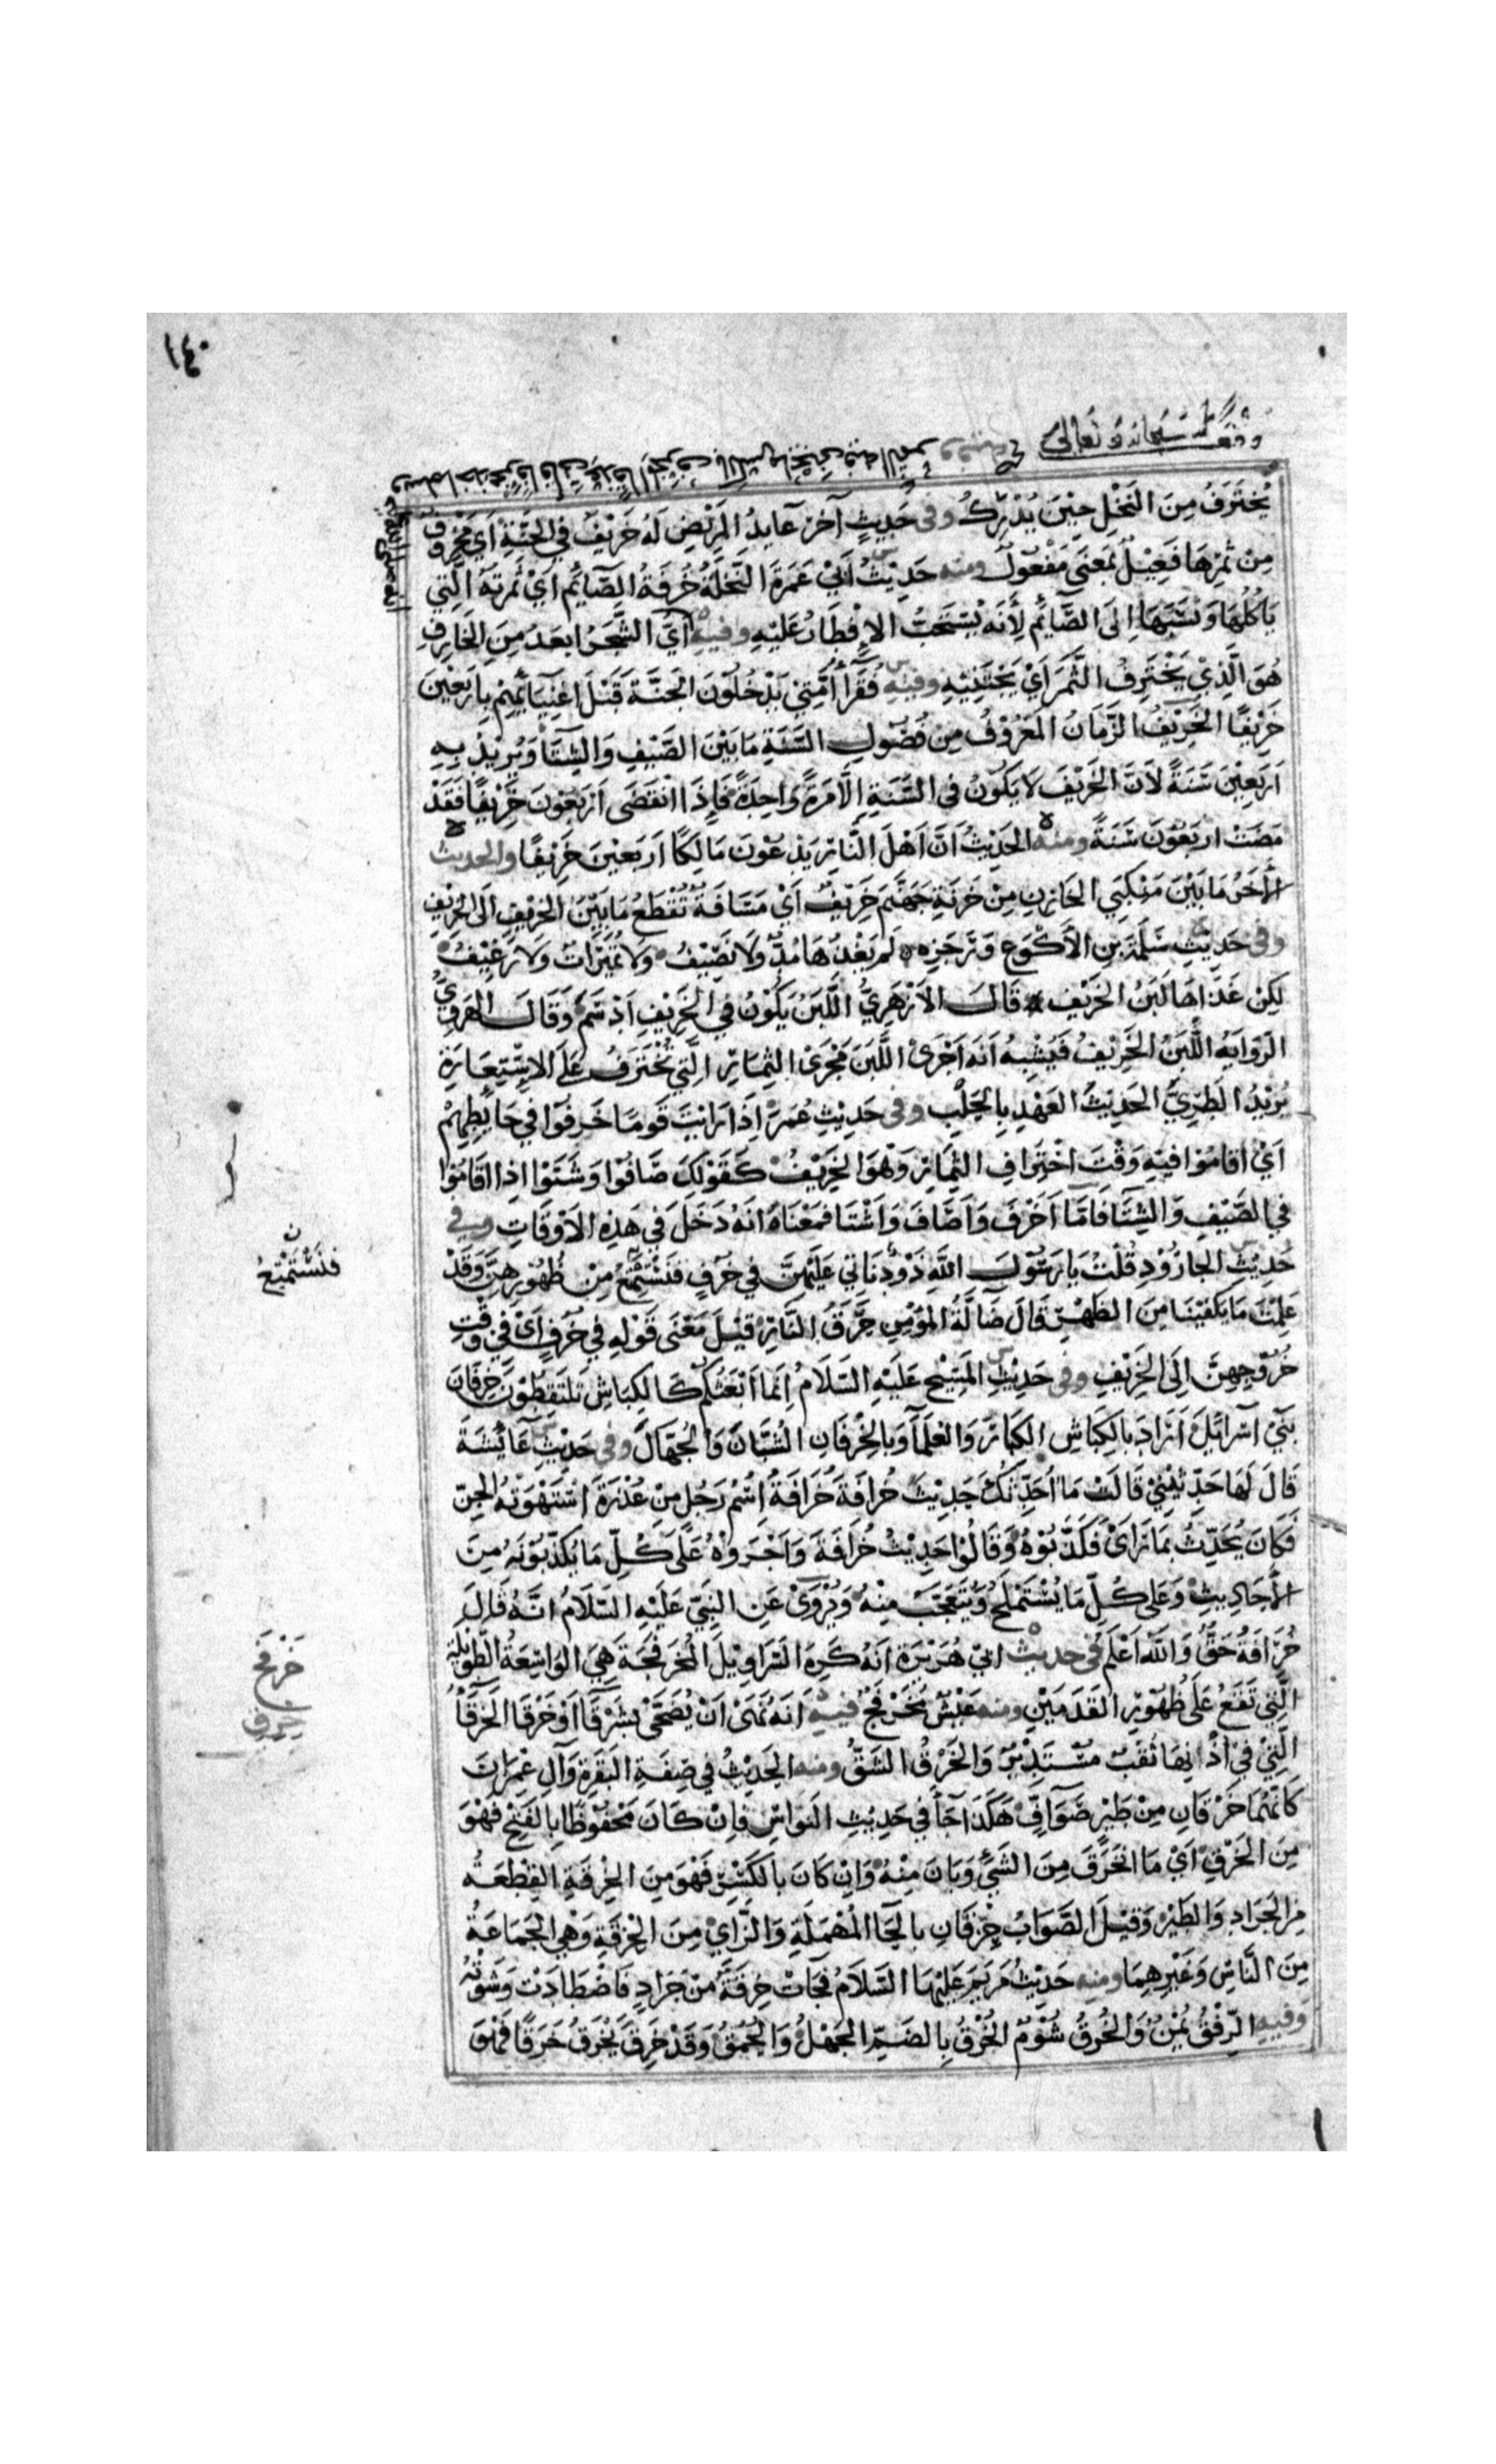 ١٤٠
وقف لله سبحانه وتعالى
يُخْتَرَفُ مِنَ النَخْلِ حِيْنَ يُدْرِكُ وفى حَدِيثٍ آخرَ عَايدُ المَرِيْضِ لَهُ خَرِيْفٌ في الجَنَّةِ اَيْ مَخْرُوفٌ
مِنْ ثَمرِهَا فَعِيْلٌ بمَعنَى مَفْعُولٌ ومنه حَدِيْثُ اَبيْ عَمَرَةَ النَّخلَةُ خُرفَةُ الصَّايُم اَيْ ثَمرتهُ الَّتِي
يَاكُلُهَا وَنَسَبَهَا اِلَى الصَّايُم لِأَنَهُ يُسْتَحَبّ الاِفطَارُ عَلَيْهِ وفيه اَيُّ الشَّجَرُ ابعَدُ مِنَ الخَارِفِ
هُوَ الَّذِيْ يَخْتَرِفُ الثَّمَرَ اَيْ يَجْتَنِيْهِ وفيْهِ فُقَرَآُ اُمَّتِيْ يَدْخُلُونَ الجَنَّةَ قَبْلَ اغْنِيَآئِهِمْ بِاَرْبَعِيْنَ
خَرِيْفًا الخَرِيْفُ الزَّمَانُ المَعْرُوْفُ مِنْ فُصُولِ السَّنَةِ مَا بَيْنَ الصَّيْفِ وَالشِتَآ وَيُرِيْدُ بِهِ
اَرْبَعِيْنَ سَنَةً لِاَنَّ الخَرِيْفَ لَا يَكُونُ في السَّنَةِ اِلَّا مَرَةً وَاحِدَةً فَاِذَا انْقَضَى اَرْبَعُونَ خَرِيْفًا فَقَدْ
مَضَتْ اَرْبَعُونَ سَنَةً ومنه الحَدِيْثُ اَنَّ اَهْلَ النَّارِ يَدْعُوْنَ مَالِكًا اَرْبَعِيْنَ خَرِيْفًا والحديث
الاَخَرُ مَا بَيْنَ مَنْكِبَيِ الخَازِنِ مِنْ خَزَنَةِ جَهَنَّمَ خَرِيْفٌ اَيْ مَسَافَةٌ تُقْطَعُ مَا بَيْنَ الخَرِيْفِ اِلَى الخَرِيْفِ
وفى حَدِيْثِ سَلَمَةَ بن الاَكْوَعِ وَرَجَزِهِ لَمْ يَغْذُهَا مُدٌّ وَلَا نَصِيْفُ وَلَا تُمَيْرَاتٌ وَلَا رَغِيْفُ
لكِنْ غَذَاهَا لَبَنُ الخَرِيْفِ قَالَ الاَزْهَرِيُّ اللَّبَنُ يَكُوْنُ فِي الخَرِيْفِ اَدْسَمَ وَقَالَ الهَرَوِيُّ
الرِوَايَه اللَّبَنُ الخَرِيْفُ فَيُشْبِهُ اَنَهُ اَجْرَى اللَّبَنَ مَجْرَى الثِمَارِ الَّتِي تُخْتَرَفُ عَلَى الاِسْتِعَارَةِ
يُرِيْدُ الطَّرِيَّ الحَدِيْثَ العَهْدِ بِالحَلْبِ وفى حَدِيْثِ عُمَرَ اِذَا رَايْتَ قَومًا خَرَفُوا في حَايُطِهِمْ
اَيْ اَقَامُوا فيْهِ وَقْتَ اخْتِرَافِ الثِمَارِ وَهُوَ الخَرِيْفُ كَقَوْلِكَ صَافُوْا وَشَتَوْا اِذَا اَقَامُوْا
في الصَّيْفِ وَالشِتَآ فَامَّا اَخْرَفَ وَاَصَافَ وَاَشْتَا فَمَعْنَاهُ اَنَهُ دَخَلَ في هَذِهِ الاَوْقَاتِ وفي
حَدِيْثِ الجَارُوْدِ قُلْتُ يَا رَسُوْلَ اللَّهِ ذَوْدٌ نَاتي عَلَيْهِنَّ في خُرُفٍ فَنَسْتَمْتِعُ مِنْ ظُهُوْرِهِنَّ وَقَدْ
ن
فَنَسْتَمْتِعُ
عَلِمْتَ مَا يَكْفِيْنَا مِنَ الظَهْرِ قَالَ ضَالَّةُ المُؤْمِنِ حَرَقُ النَّارِ قيْلَ مَعْنَى قَوْلِهِ في خُرُفٍ اَيْ في وَقْتِ
خُرُوْجِهِنَّ اِلَى الخَرِيْفِ وفى حَدِيْثِ المَسِيْحِ عَلَيْهِ السَّلَامُ اِنَّمَا اَبْعَثُكُمْ كَالكِبَاشِ تَلتَقِطُوْنَ خِرْفَانَ
بَنِيْ اسْرَائِلَ اَرَادَ بِالكِبَاشِ الكِبَارَ وَالعُلَمَآَ وَبِالخِرْفَانِ الشُّبَّانَ وَالجُهَّالَ وفى حَدِيْثِ عَائِشَةَ
قَالَ لَهَا حَدِّثِيْنِيْ قَالَتْ مَا اُحَدِّثُكَ حَدِيْثَ خُرَافَةَ خُرَافَةُ اِسْمُ رَجُلٍ مِنْ عُذْرَةَ اسْتَهْوَتْهُ الجِنّ
فَكَانَ يُحَدِّثُ بمَا رَاَىْ فَكَذَّبُوْهُ وَقَالُوْا حَدِيْثُ خُرَافَةَ وَاَجْرَوْهُ عَلَى كُلِّ مَا يُكَذِّبُوْنَهُ مِنَ
الاَحَادِيثِ وَعَلى كُلِّ مَا يُسْتَمْلَحُ وَيُتَعَجَّبُ مِنْهُ وَيُرْوَىْ عَنِ النَبِيّ عَلَيْهِ السَّلَامُ اَنَّهُ قَالَ
خُرَافَةُ حَقٌّ وَاللّه اَعْلَم في حديْث ابيْ هُرَيْرَةَ اَنَهُ كَرِهَ السَرَاوِيْلَ المُخَرْفَجَةَ هِيَ الوَاسِعَةُ الطَّوِيْلَةُ
خَرْفَج
الَّتِي تَقَعُ عَلَى ظُهُوْرِ القَدَمَيْنِ ومنه عَيْشٌ مُخَرْفَجٌ فيه اَنَهُ نَهَى اَنْ يُضَحَّى بِشَرْقَآَ اَوْ خَرْقَآ الخَرْقَآُ
الَّتِيْ في اُذْنِهَا ثَقبٌ مسْتَدِيْرٌ وَالخَرْقُ الشَقُّ ومنه الحَدِيْثُ في صِفَةِ البَقَرةِ وَآلِ عِمْرَانَ
كَاَنَّهُمَا خَرْقَانِ مِنْ طَيْرٍ صَوَآفٍّ هَكَذَا جَآَ في حَدِيْثِ النَوَاسِ فَاِنْ كَانَ مَحْفُوْظًا بِالفَتْحِ فَهُوَ
مِنَ الخَرْقِ اَيْ مَا انْخَرَقَ مِنَ الشَيْءِ وَبَانَ مِنْهُ وَاِنْ كَانَ بالكَسْرِ فَهُوَ مِنَ الخِرْقَةِ القِطْعَةُ
مِنَ الجَرَادِ وَالطَيْر وَقِيْلَ الصَّوَابُ حِزْقَانِ بالحَآ المُهْمَلَةِ وَالزَّايْ مِنَ الحِزْقَةِ وَهْيَ الجَمَاعَةُ
مِنَ النَّاسِ وَغَيْرِهِمَا ومنه حَدِيْثُ مَرْيَمَ عَلَيْهَا السَّلَامُ فَجَآتْ خِرقَةٌ مِنْ جَرَادٍ فَاصْطَادَتْ وَشَوَتْهُ
وفيه الرِّفْقُ يُمْنٌ وَالخُرقُ شُوْمٌ الخُرْقُ بِالضَمِّ الجَهْلُ وَالحُمْقُ وَقَدْ خَرِقَ يَخْرَقُ خَرَقًا فَهْوَ